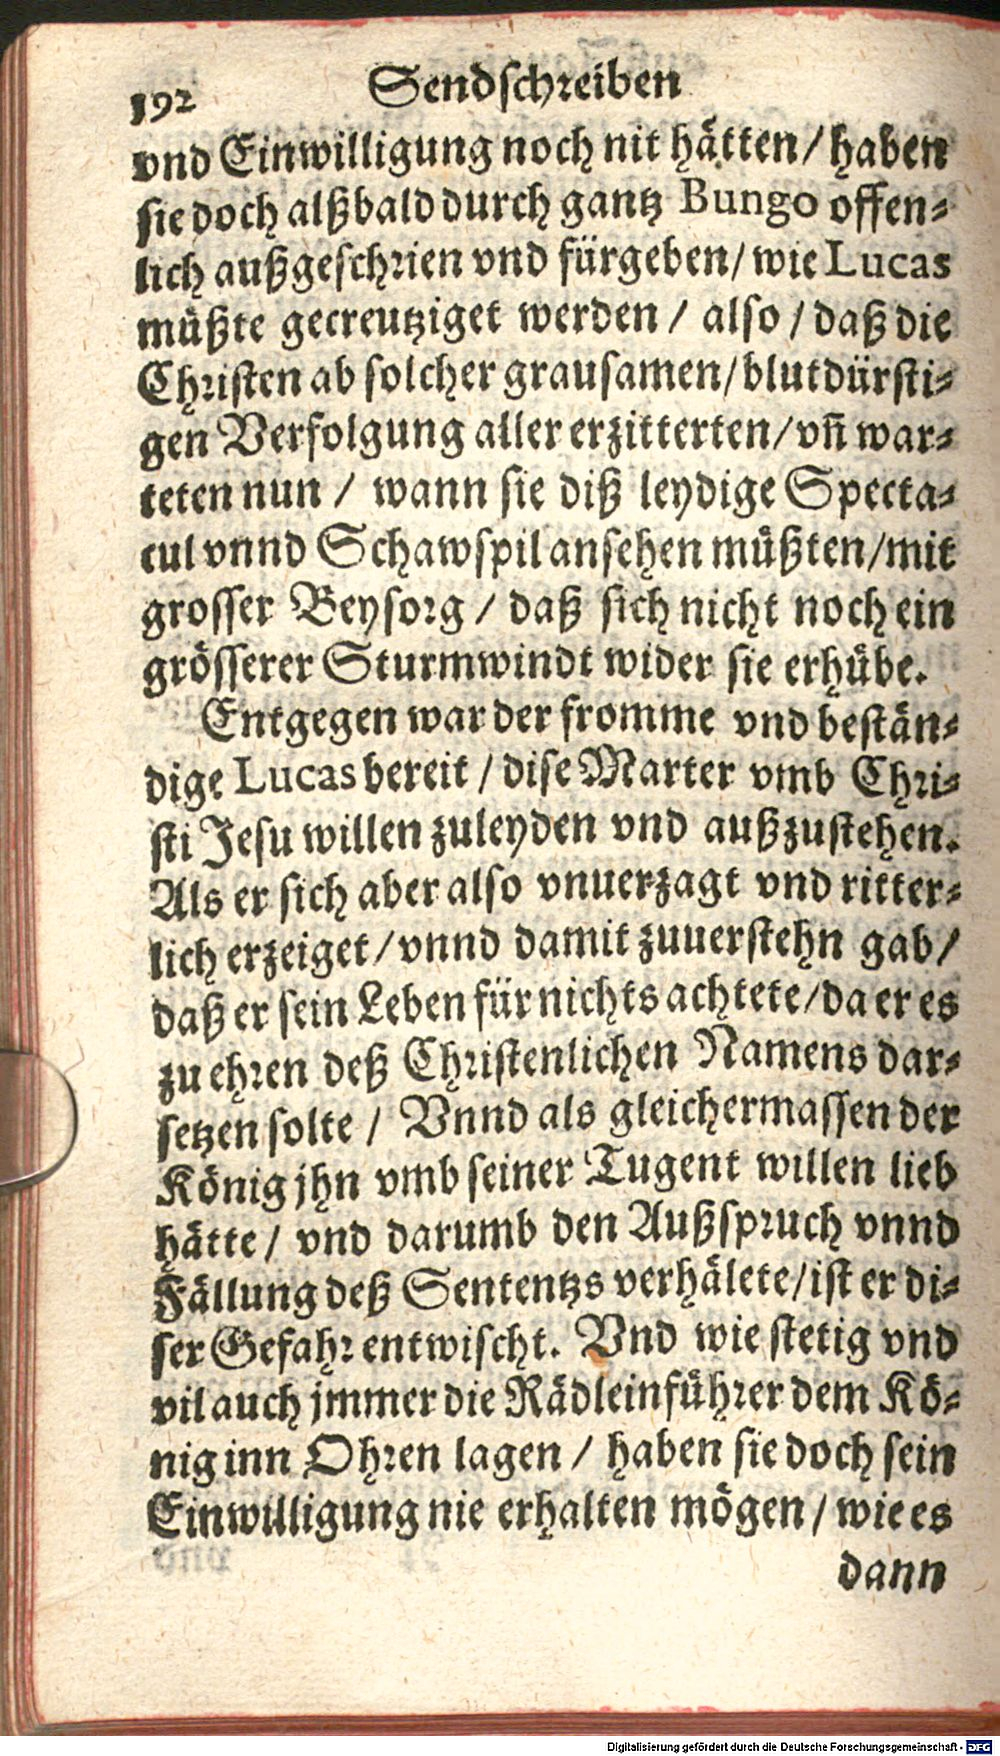 192 Sendschreiben
vnd Einwilligung noch nit hätten / haben
sie doch alßbald durch gantz Bungo offen-
lich außgeschrien vnd fürgeben / wie Lucas
müßte gecreutziget werden / also / daß die
Christen ab solcher grausamen / blutdürsti-
gen Verfolgung aller erzitterten / vñ war-
teten nun / wann sie diß leydige Specta-
cul vnnd Schawspil ansehen müßten / mit
grosser Beysorg / daß sich nicht noch ein
grösserer Sturmwindt wider sie erhübe.
Entgegen war der fromme vnd bestän-
dige Lucas bereit / dise Marter vmb Chri-
sti Jesu willen zuleyden vnd außzustehen.
Als er sich aber also vnuerzagt vnd ritter-
lich erzeiget / vnnd damit zuuerstehn gab /
daß er sein Leben für nichts achtete / da er es
zu ehren deß Christenlichen Namens dar-
setzen solte / Vnnd als gleichermassen der
König jhn vmb seiner Tugent willen lieb
hätte / vnd darumb den Außspruch vnnd
Fällung deß Sententzs verhälete / ist er di-
ser Gefahr entwischt. Vnd wie stetig vnd
vil auch jmmer die Rädleinführer dem Kö-
nig inn Ohren lagen / haben sie doch sein
Einwilligung nie erhalten mögen / wie es
dann
Digitalisierung gefördert durch die Deutsche Forschungsgemeinschaft - DFG